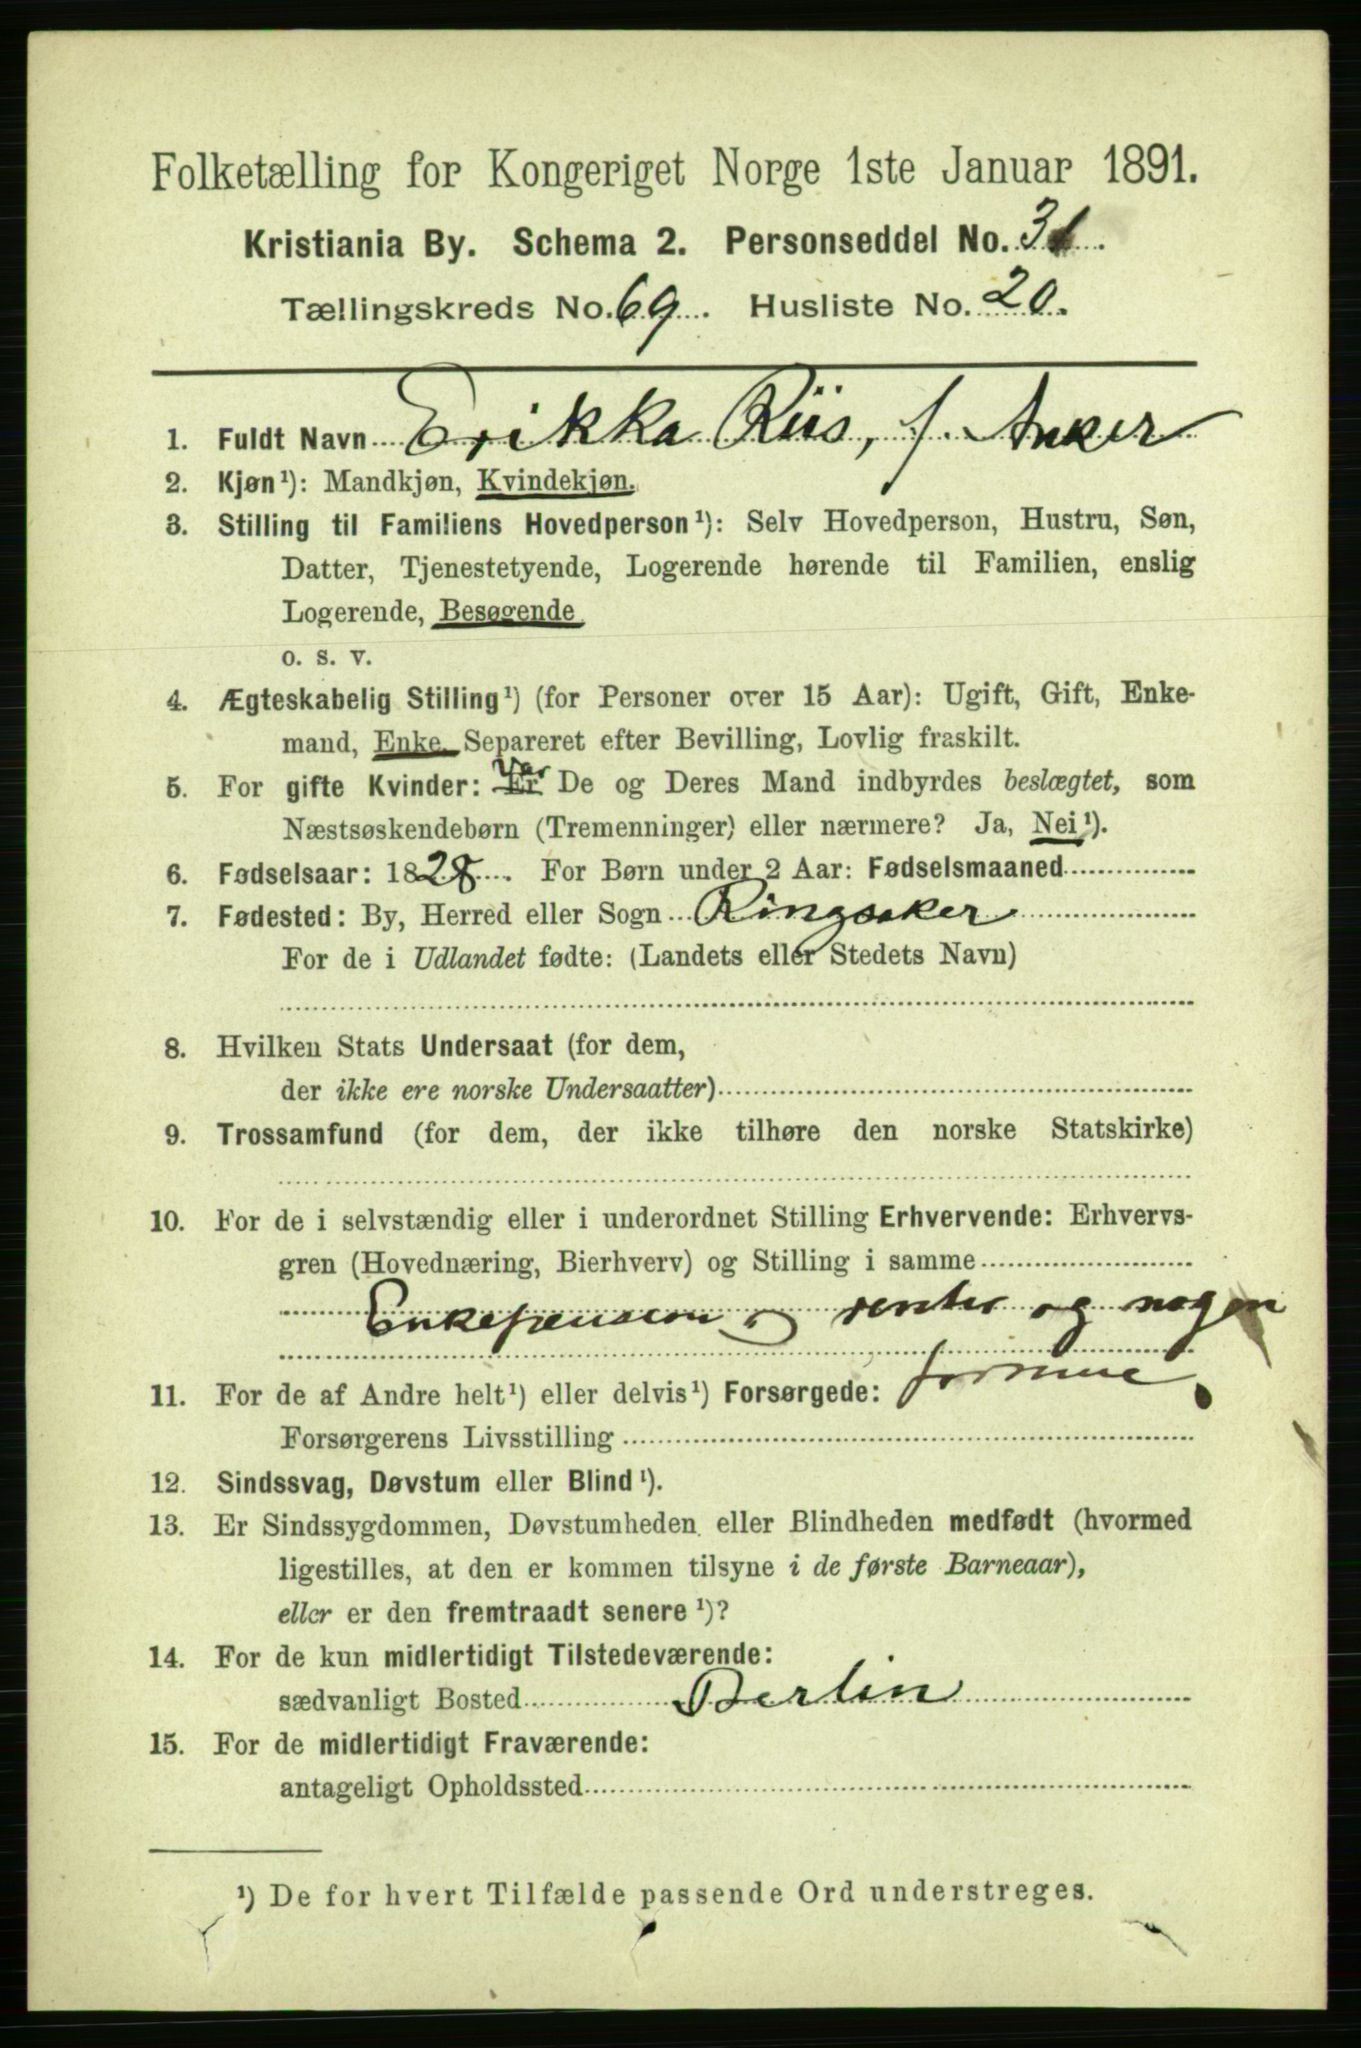 Folketælling for Kongeriget Norge 1ste Januar 1891.
Kristiania By. Schema 2. Personseddel No. 31.
Tællingskreds No. 69. Husliste No. 20.
1. Fuldt Navn Erikka Riis, f. Anker
2. Kjøn¹): Mandkjøn, Kvindekjøn.
3. Stilling til Familiens Hovedperson¹): Selv Hovedperson, Hustru, Søn,
Datter, Tjenestetyende, Logerende hørende til Familien, enslig
Logerende, Besøgende
o. s. v.
4. Ægteskabelig Stilling¹) (for Personer over 15 Aar): Ugift, Gift, Enke-
mand, Enke, Separeret efter Bevilling, Lovlig fraskilt.
Var
5. For gifte Kvinder: Er De og Deres Mand indbyrdes beslægtet, som
Næstsøskendebørn (Tremenninger) eller nærmere? Ja, Nei¹).
6. Fødselsaar: 1828. For Børn under 2 Aar: Fødselsmaaned
7. Fødested: By, Herred eller Sogn Ringsaker
For de i Udlandet fødte: (Landets eller Stedets Navn)
8. Hvilken Stats Undersaat (for dem,
der ikke ere norske Undersaatter)
9. Trossamfund (for dem, der ikke tilhøre den norske Statskirke)
10. For de i selvstændig eller i underordnet Stilling Erhvervende: Erhvervs-
gren (Hovednæring, Bierhverv) og Stilling i samme
Enkepension, renter og nogen
formue.
11. For de af Andre helt¹) eller delvis¹) Forsørgede:
Forsørgerens Livsstilling
12. Sindssvag, Døvstum eller Blind¹).
13. Er Sindssygdommen, Døvstumheden eller Blindheden medfødt (hvormed
ligestilles, at den er kommen tilsyne i de første Barneaar),
eller er den fremtraadt senere¹)?
14. For de kun midlertidigt Tilstedeværende:
sædvanligt Bosted Berlin
15. For de midlertidigt Fraværende:
antageligt Opholdssted
¹) De for hvert Tilfælde passende Ord understreges.